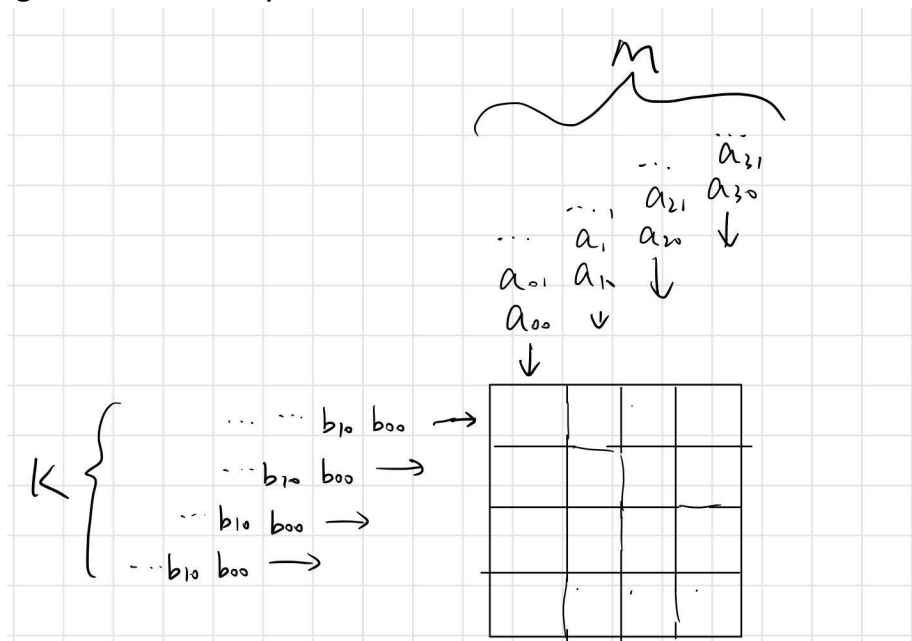 M
... a31
... a21 a30
... a1 a20
... a01 a10
a00
... ... b10 b00
K
... b10 b00
... b10 b00
... b10 b00